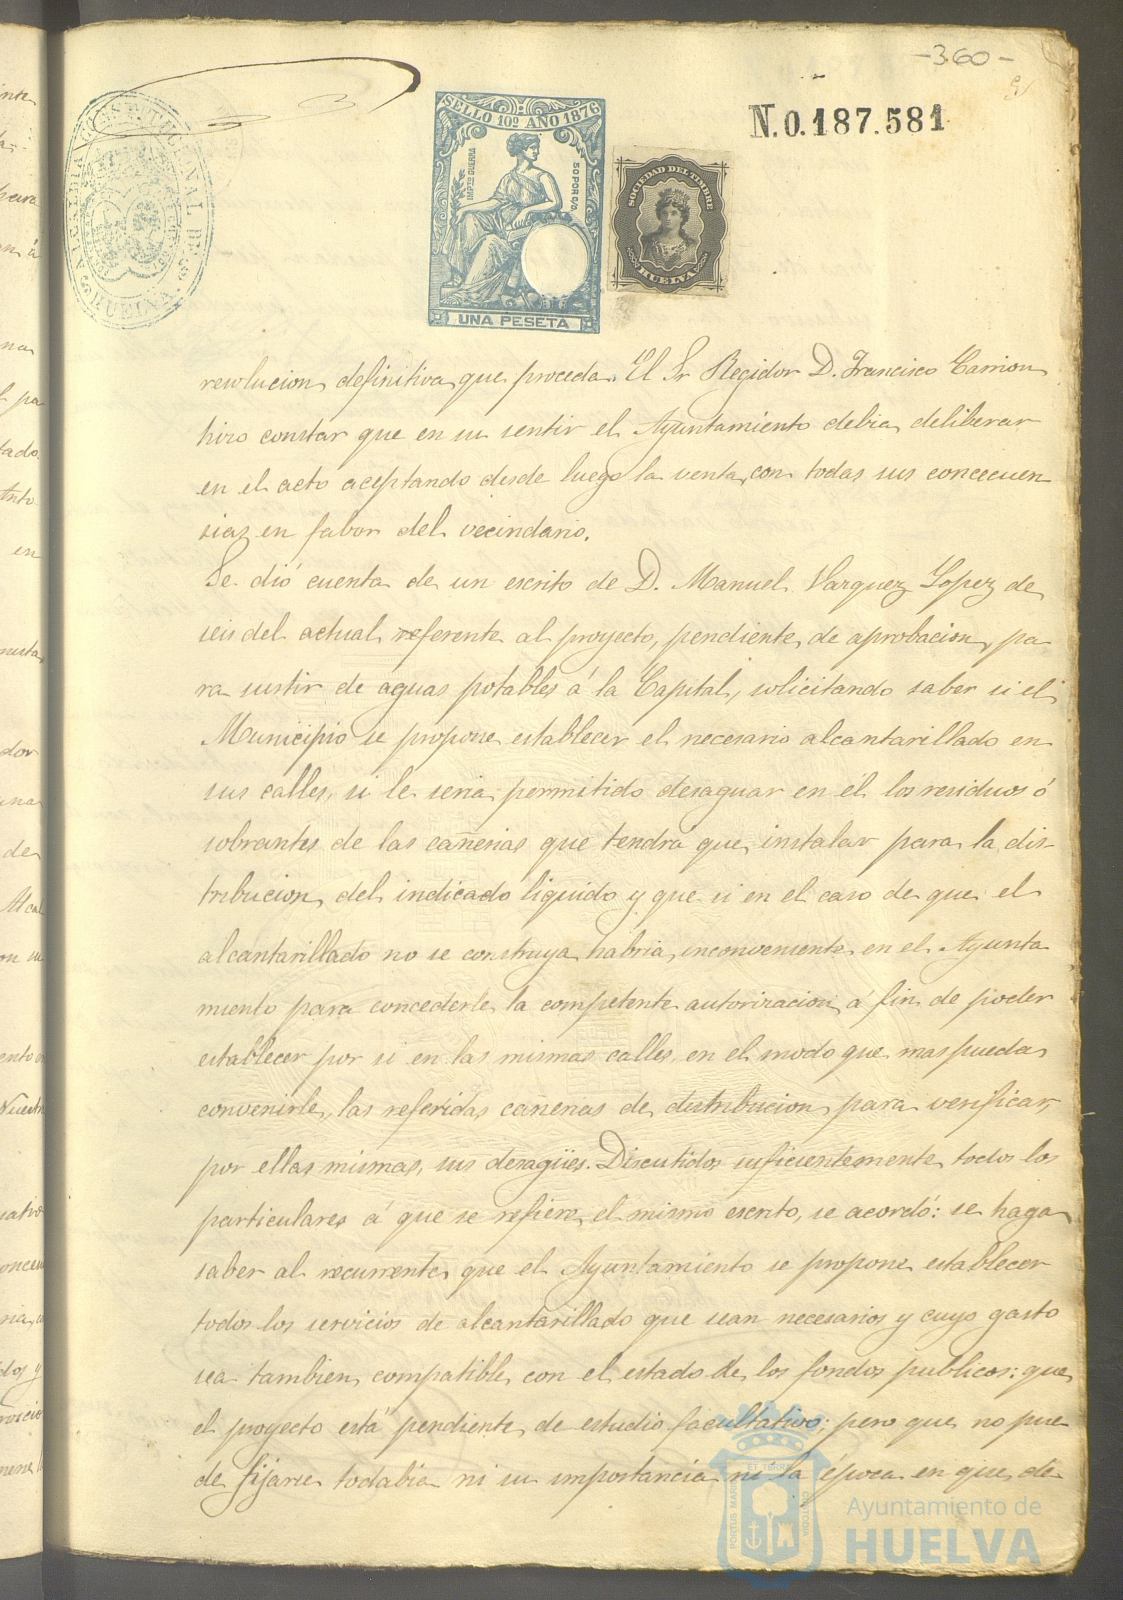 -360-
N.0.187.581
SELLO 10º AÑO 1876
IMPTO GUERRA
50 POR C/O
UNA PESETA
SOCIEDAD DEL TIMBRE
HUELVA
ALCALDIA CONSTITUCIONAL DE
HUELVA
resolucion definitiva que proceda. El Sr Regidor D. Francisco Carrion
hizo constar que en su sentir el Ayuntamiento debia deliberar
en el acto aceptando desde luego la venta con todas sus concecuen
sias en fabor del vecindario.
Se dió cuenta de un escrito de D. Manuel Vazquez Lopez de
seis del actual referente al proyecto, pendiente de aprobacion, pa
ra surtir de aguas potables á la Capital, solicitando saber si el
Municipio se propone establecer el necesario alcantarillado en
sus calles, si le seria permitido desaguar en él los residuos ó
sobrantes de las cañerias que tendrá que instalar para la dis-
tribucion del indicado liquido y que si en el caso de que el
alcantarillado no se construya habria inconveniente en el Ayunta
miento para concederle la competente autorizacion á fin de poder
establecer por si en las mismas calles, en el modo que mas pueda
convenirle, las referidas cañerias de distribucion para verificar,
por ellas mismas, sus desagües. Discutidos suficientemente todos los
particulares á que se refiere el mismo escrito, se acordó: se haga
saber al recurrente que el Ayuntamiento se propone establecer
todos los servicios de alcantarillado que sean necesarios y cuyo gasto
sea tambien compatible con el estado de los fondos publicos: que
el proyecto está pendiente de estudio facultativo; pero que no pue
de fijarse todabia ni su importancia ni la época en que de
PORTUS MARIS ET TERRE CUSTODIA
Ayuntamiento de
HUELVA